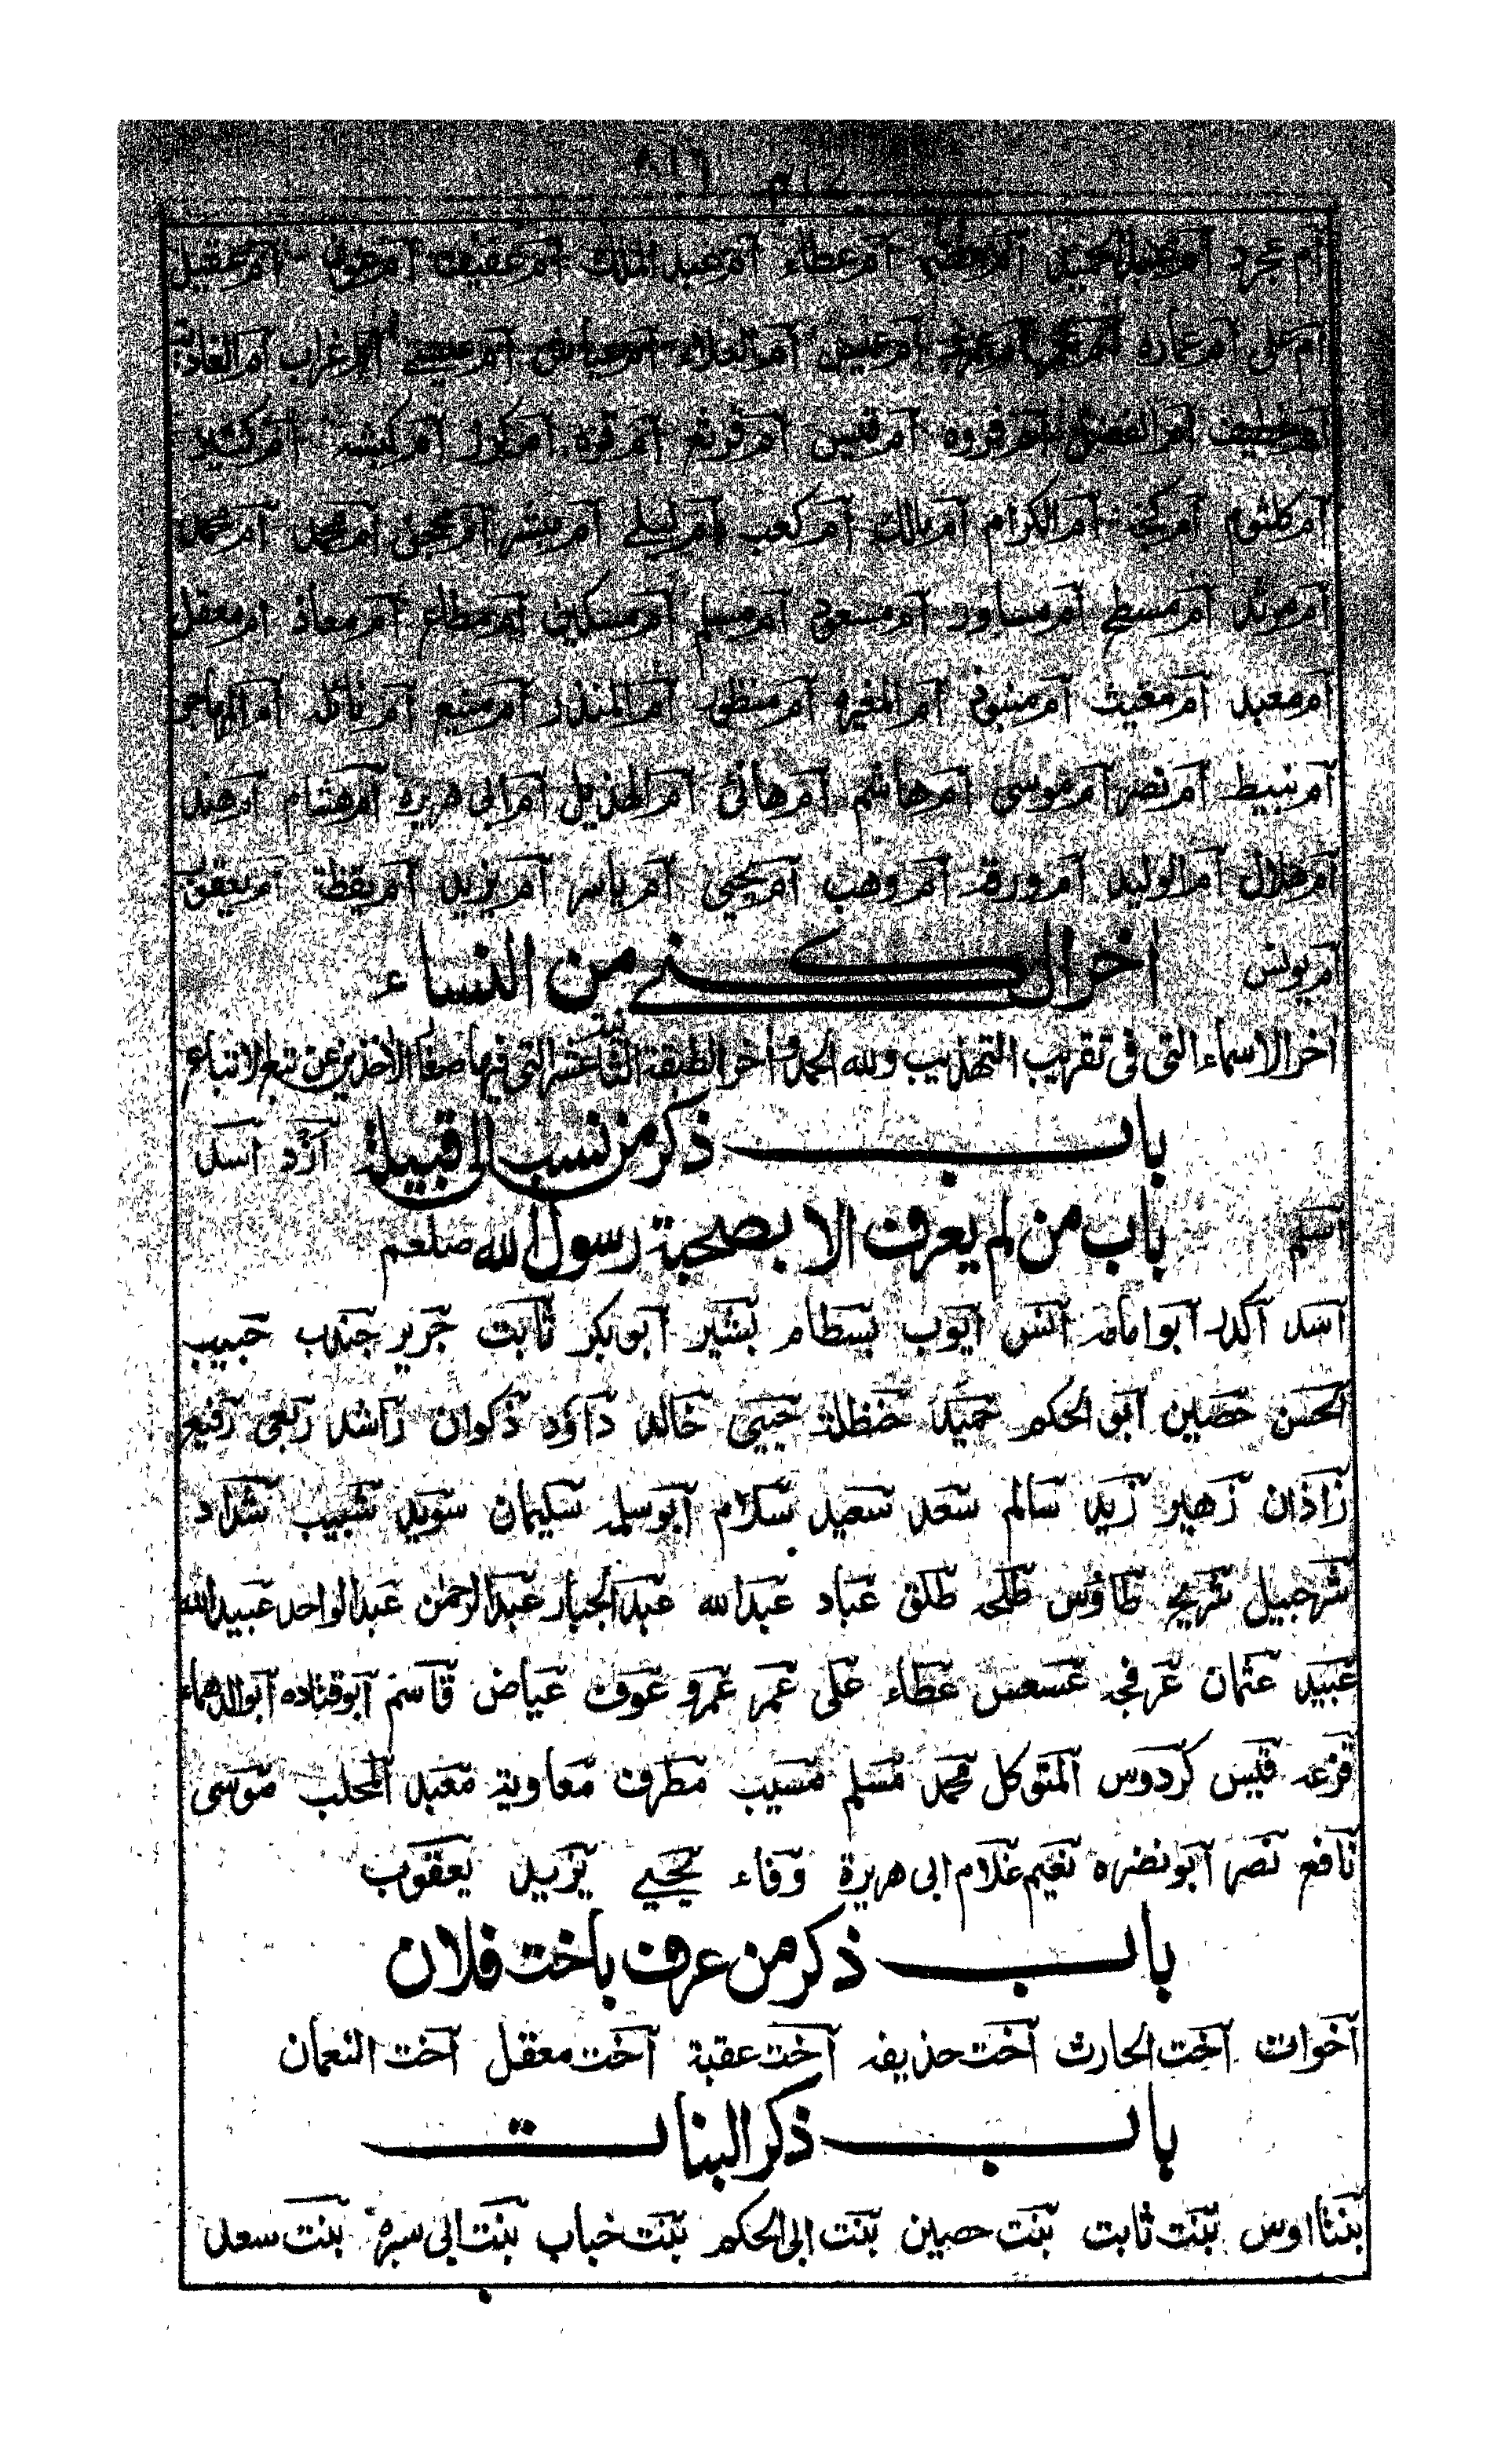 ام عجرد ام عبد الحميد ام عطاء ام عبد الملك ام عفيف ام عوف ام عقيل
ام علي ام عماره ام عمر ام عيسى ام العلاء ام عياش ام عيسے ام غراب ام الغاديه
ام الفضل ام فروه ام قيس ام قريع ام قره ام كرز ام كبشه ام كثير
ام كلثوم ام كجه ام الكرام ام مالك ام كعب ام ليلے ام مبشر ام محجن ام محمد ام محمد
ام مرثد ام مسطح ام مساور ام مسعود ام مسلم ام مسكين ام مطاع ام معاذ ام معقل
ام معبد ام مغيث ام منبوذ ام المغيره ام منظور ام المنذر ام منيع ام نائله ام المهاجر
ام نبيط ام نصر ام موسى ام هاشم ام هانئ ام الهذيل ام ابى هريره ام هشام
ام هلال ام الوليد ام ورقه ام وهب ام يحيى ام ياسر ام يزيد ام يقظة ام يعقوب
ام يونس اخر الكنے من النساء
اخر الاسماء التى فى تقريب التهذيب ولله الحمد و اخر الطبقة الثانية عشر التى فيها صغار الاخذين عن تبع الاتباع
باب ذكر من نسب الى قبيلة ازد اسد
اسلم باب من لم يعرف الا بصحبة رسول الله صلعم
اسد اكدر ابو امامه انس ايوب بسطام بشير ابو بكر ثابت جرير جندب حبيب
الحسن حصين ابو الحكم حميد حنظلة حيى خالد داؤد ذكوان راشد ربعى رفيع
زاذان زهير زيد سالم سعد سعيد سلام ابو سلمه سليمان سويد شبيب شداد
شرحبيل شريح طاؤس طلحه طلق عباد عبد الله عبد الجبار عبد الرحمن عبد الواحد عبيد الله
عبيد عثمان عرفجه عسعس عطاء على عمر عمرو عوف عياض قاسم ابو قتاده ابو الدهماء
قزعه قيس كردوس المتوكل محمد مسلم مسيب مطرف معاوية معبد المحلب موسى
نافع نصر ابو نضره نعيم غلام ابى هريرة وفاء يحيے يزيد يعقوب
باب ذكر من عرف باخت فلان
اخوات اخت الحارث اخت حذيفه اخت عقبة اخت معقل اخت النعمان
باب ذكر البنات
بنتا اوس بنت ثابت بنت حصين بنت ابى الحكم بنت خباب بنت ابى سبره بنت سعد